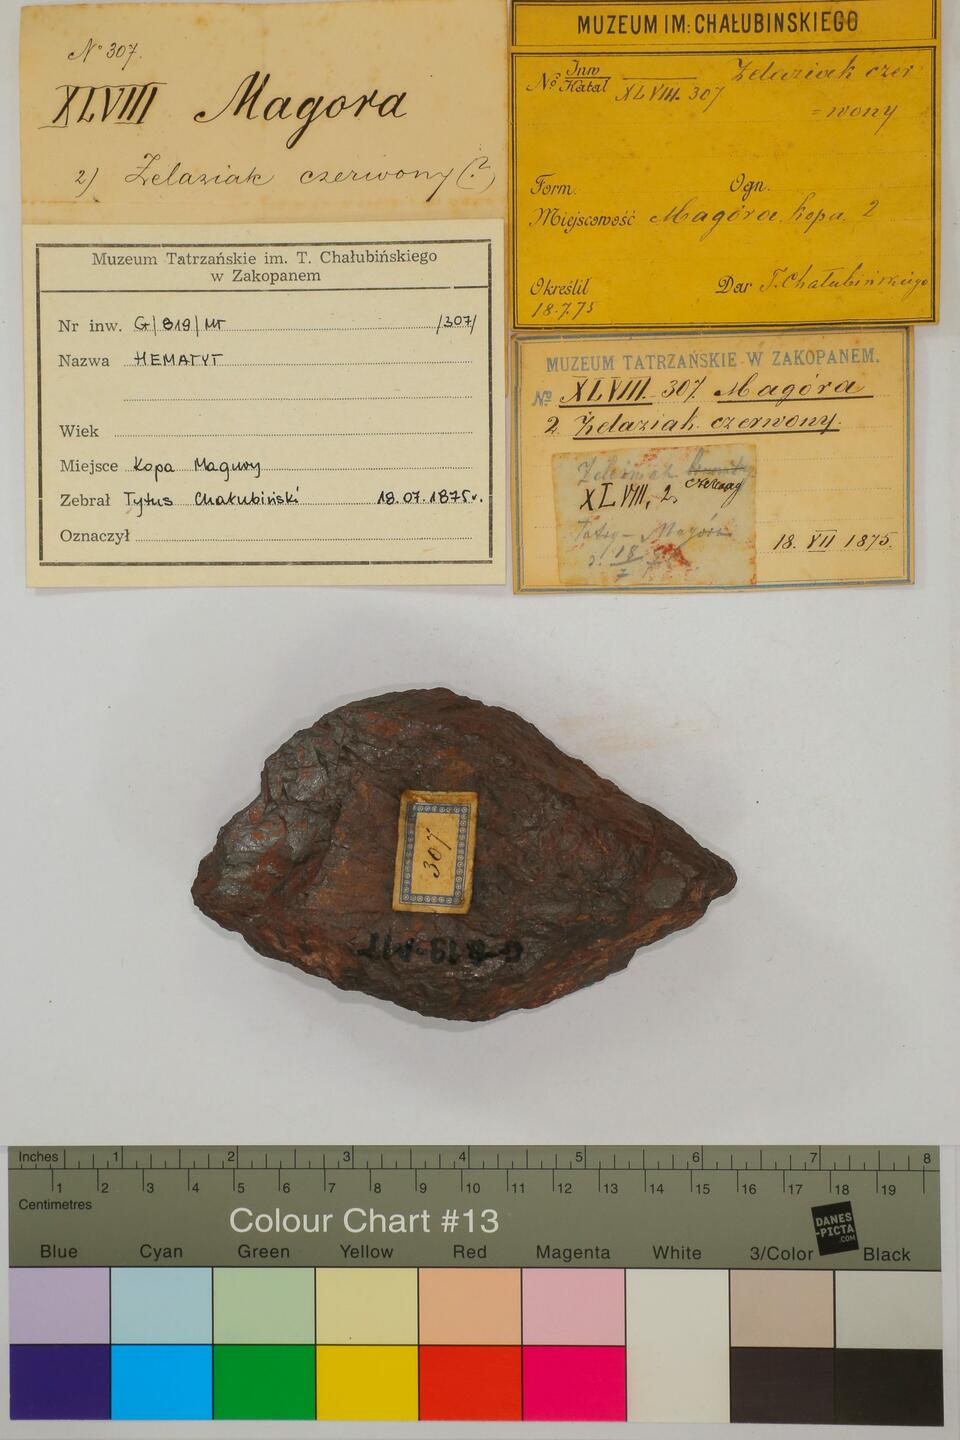 No 307.
XLVIII Magora
2) Żelaziak czerwony (?)
MUZEUM IM: CHAŁUBINSKIEGO
No Inw Katal XLVIII. 307 Żelaziak czer
=wony
Form. Ogn.
Miejscowość Magóra kopa 2
Określił Dar T. Chałubińskiego
18.7.75
Muzeum Tatrzańskie im. T. Chałubińskiego
w Zakopanem
Nr inw. G/819/MT /307/
Nazwa HEMATYT
Wiek
Miejsce Kopa Magury
Zebrał Tytus Chałubiński 18.07.1875r.
Oznaczył
MUZEUM TATRZAŃSKIE W ZAKOPANEM.
No XLVIII. 307. Magóra
2 Żelaziak czerwony.
Żelaziak
XLVIII, 2.
Tatry - Magóra
18
7
18. VII 1875.
307
G-819-MT
Inches 1 2 3 4 5 6 7 8
1 2 3 4 5 6 7 8 9 10 11 12 13 14 15 16 17 18 19
Centimetres
Colour Chart #13
DANES
-PICTA
.COM
Blue Cyan Green Yellow Red Magenta White 3/Color Black